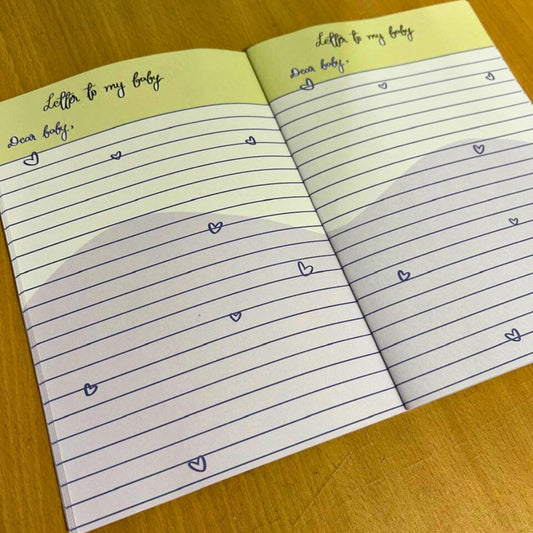 Letter to my baby
Dear baby,
Letter to my baby
Dear baby,